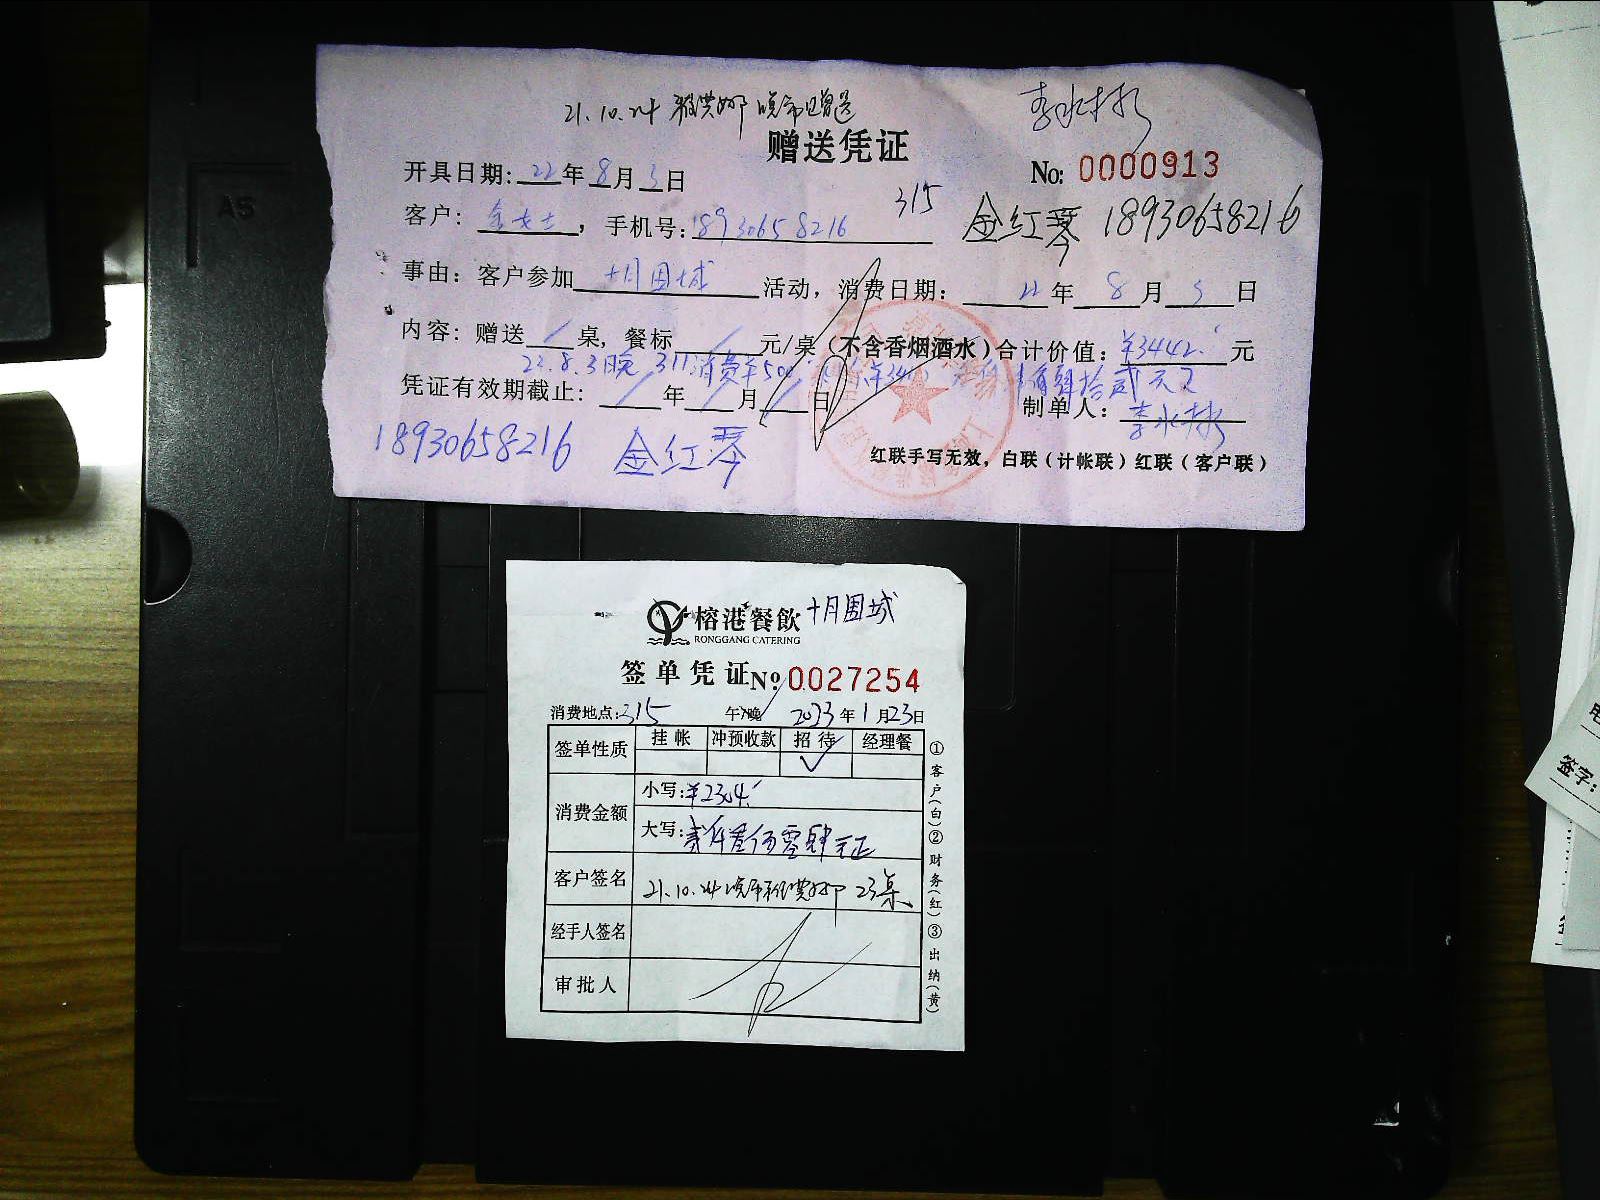 21.10.24 晚市赠送
李水林
赠送凭证
No: 0000913
开具日期: 22年8月3日
315
客户: 金女士, 手机号: 18930658216
金红琴 18930658216
事由: 客户参加 十月围城 活动, 消费日期: 22年8月3日
内容: 赠送/桌, 餐标/元/桌 (不含香烟酒水) 合计价值: ¥3442.元
22.8.3晚 311消费
凭证有效期截止: /年/月/日
制单人: 李水林
18930658216 金红琴
红联手写无效, 白联 (计帐联) 红联 (客户联)
A5
榕港餐飲 十月围城
RONGGANG CATERING
签单凭证 No 0027254
消费地点: 315 午/晚 2023年1月23日
签单性质 挂帐 冲预收款 招待 经理餐
消费金额
小写: ¥2304.
大写: 贰仟叁佰零肆元正
客户签名 21.10.24晚市 23桌
经手人签名
审批人
①客户(白)②财务(红)③出纳(黄)
签字: